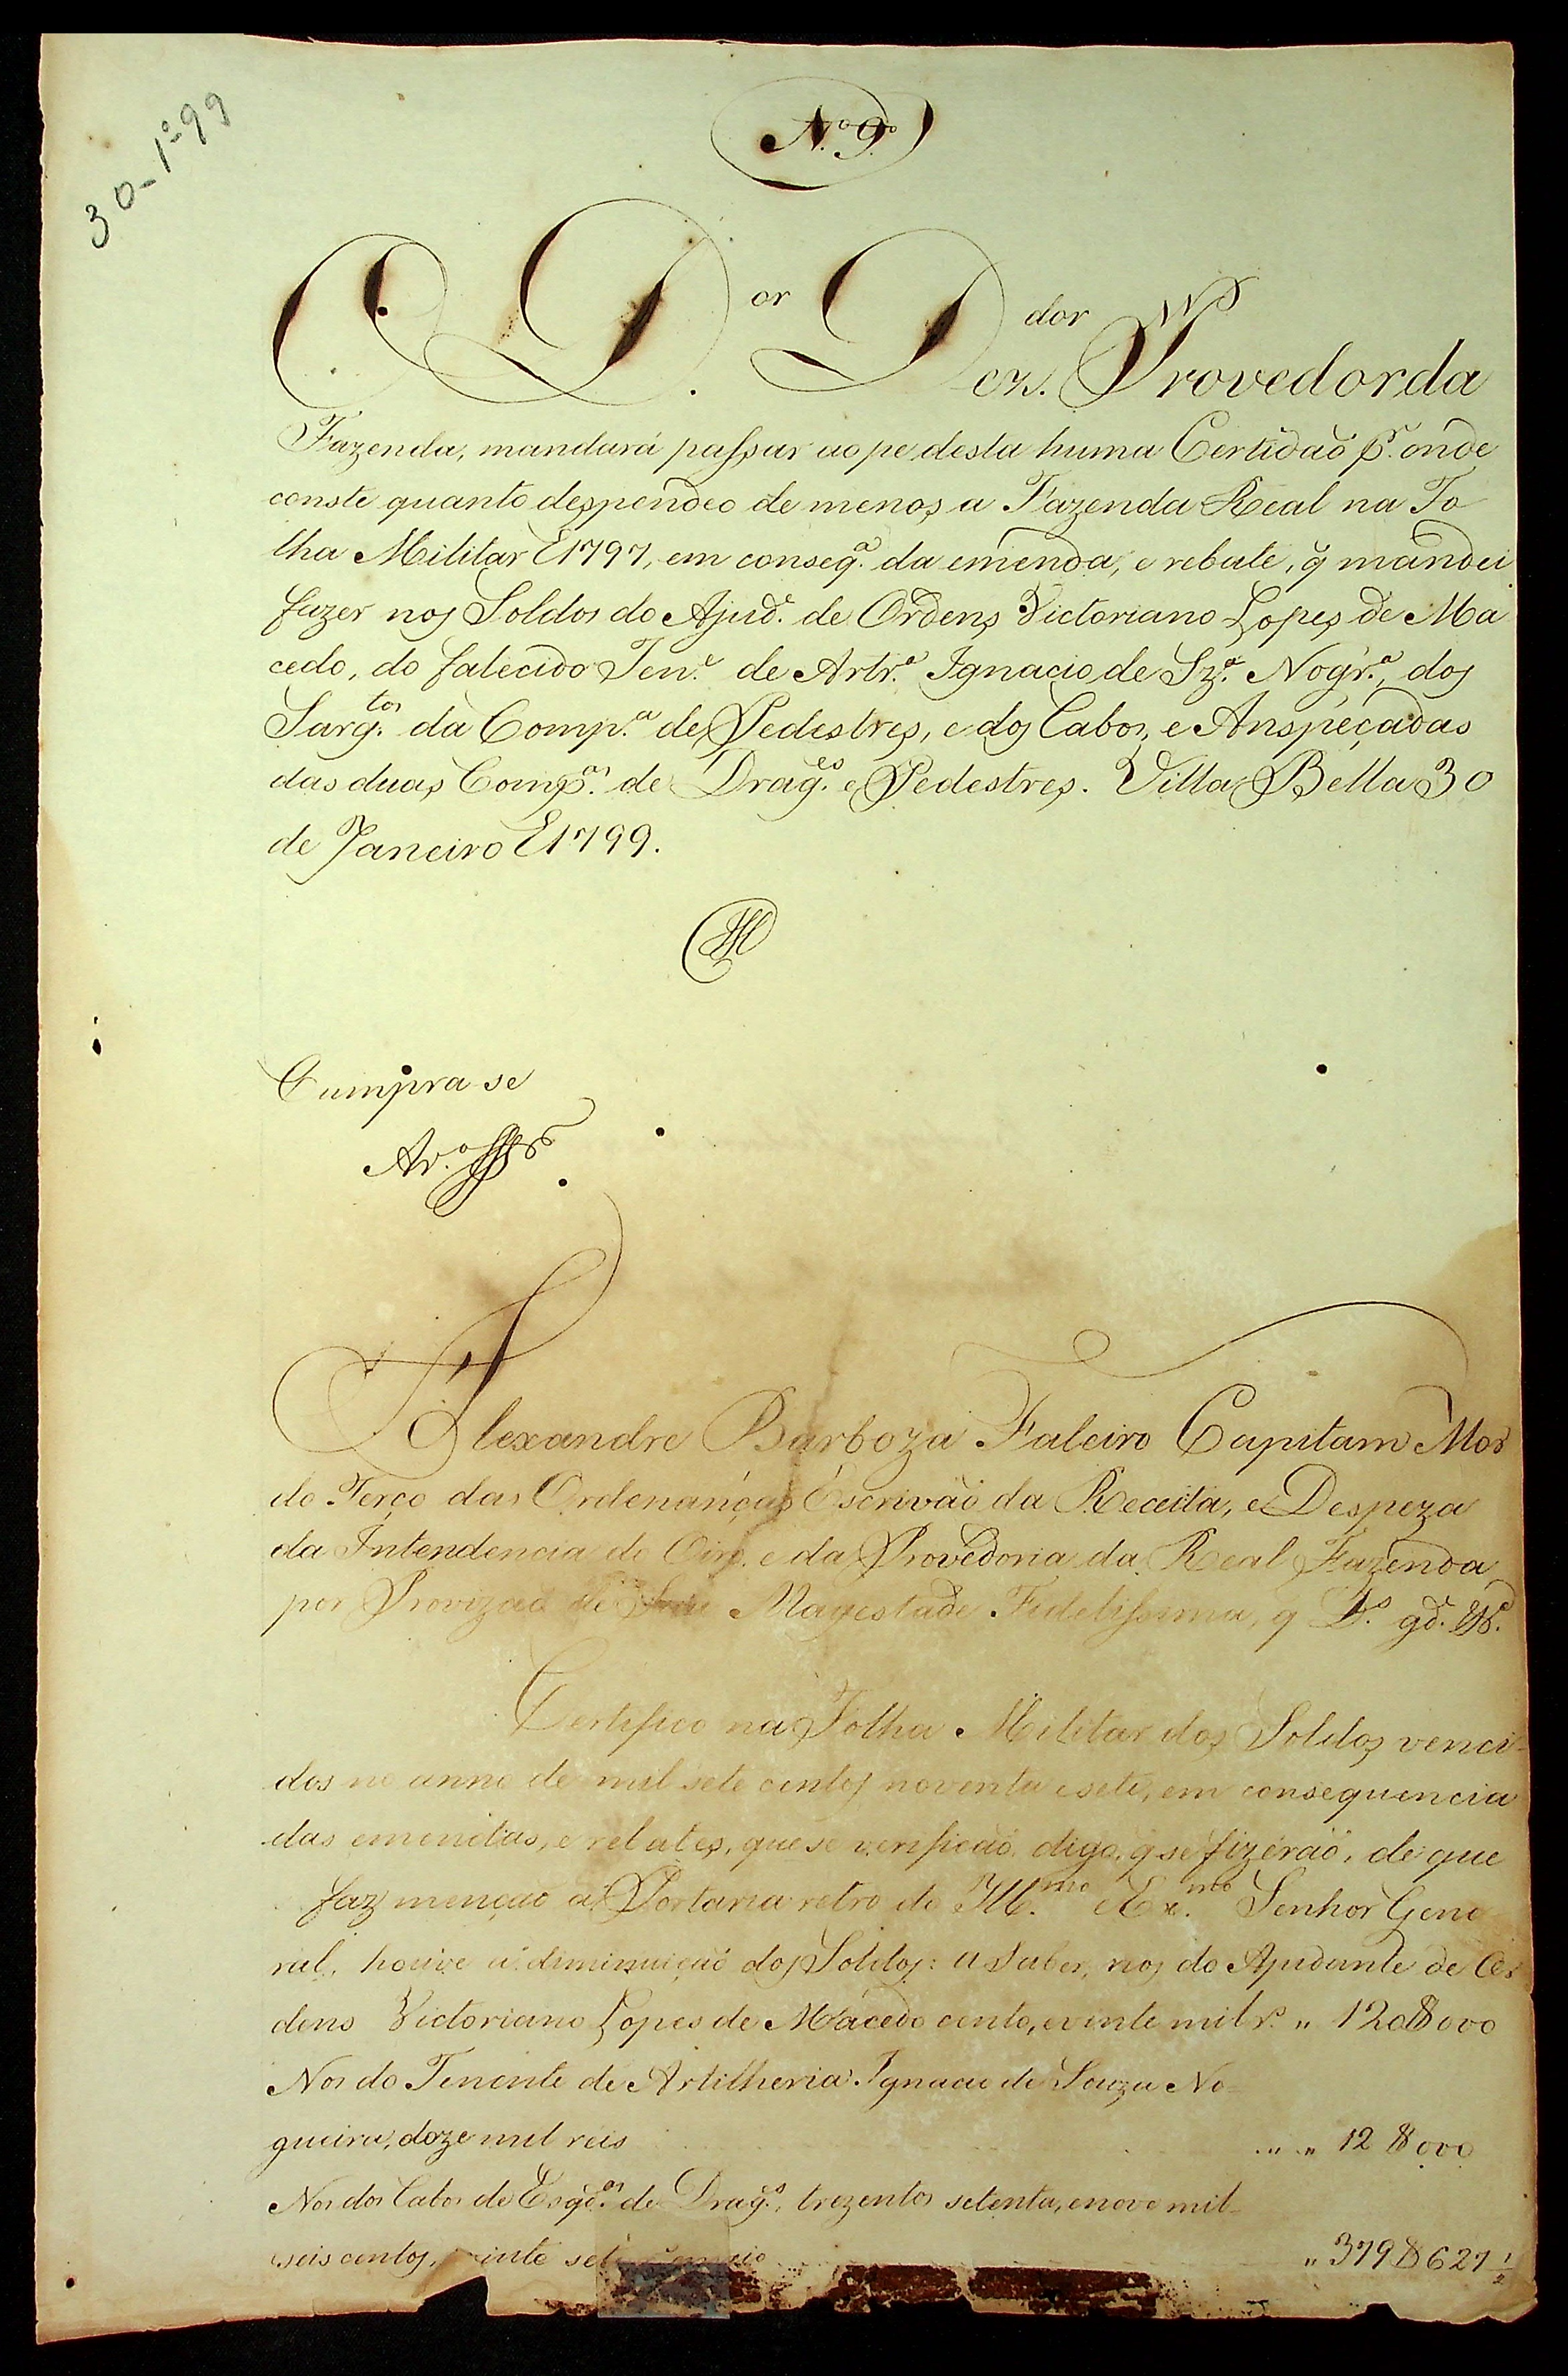 30-1º-99
N.º 9.º
O D.or Dez.dor Provedor da
Fazenda, mandará passar ao pe desta huma Certidaõ p.r onde
conste quanto despendeo de menos a Fazenda Real na Fo
lha Militar E 1797, em conseq.a da emenda, e rebate, q̃ mandei
fazer nos Soldos do Ajud.e de Ordens Victoriano Lopes de Ma
cedo, do falecido Ten.e de Artr.a Ignacio de Sz.a Nogr.a, dos
Sarg.tos da Comp.a de Pedestres, e dos Cabos, e Anspeçadas
das duas Comp.as de Drag.es e Pedestres. Villa Bella 30
de Janeiro E 1799.
Cumpra-se
Alexandre Barboza Faleiro Capitam Mor
do Terço das Ordenanças Escrivaõ da Receita, e Despeza
da Intendencia do Oiro, e da Provedoria da Real Fazenda
por Provizaõ de Sua Magestade Fidelissima, q D.s g.de &.
Certifico na Folha Militar dos Soldos venci-
dos no anno de mil sete centos noventa e sete, em consequencia
das emendas, e rebates, que se verificaõ digo, q se fizeraõ, de que
faz mençaõ a Portaria retro do Ill.mo e Ex.mo Senhor Gene
ral, houve a diminuiçaõ dos Soldos: a saber, nos do Ajudante de Or
dens Victoriano Lopes de Macedo cento, e vinte mil r.s " 120$000
Nos do Tenente de Artilheria Ignacio de Souza No-
gueira, doze mil reis " " 12$000
Nos dos Cabos de Esqd.as de Drag.s, trezentos setenta, e nove mil
seis centos, vinte sete e meio " 379$627 1/2